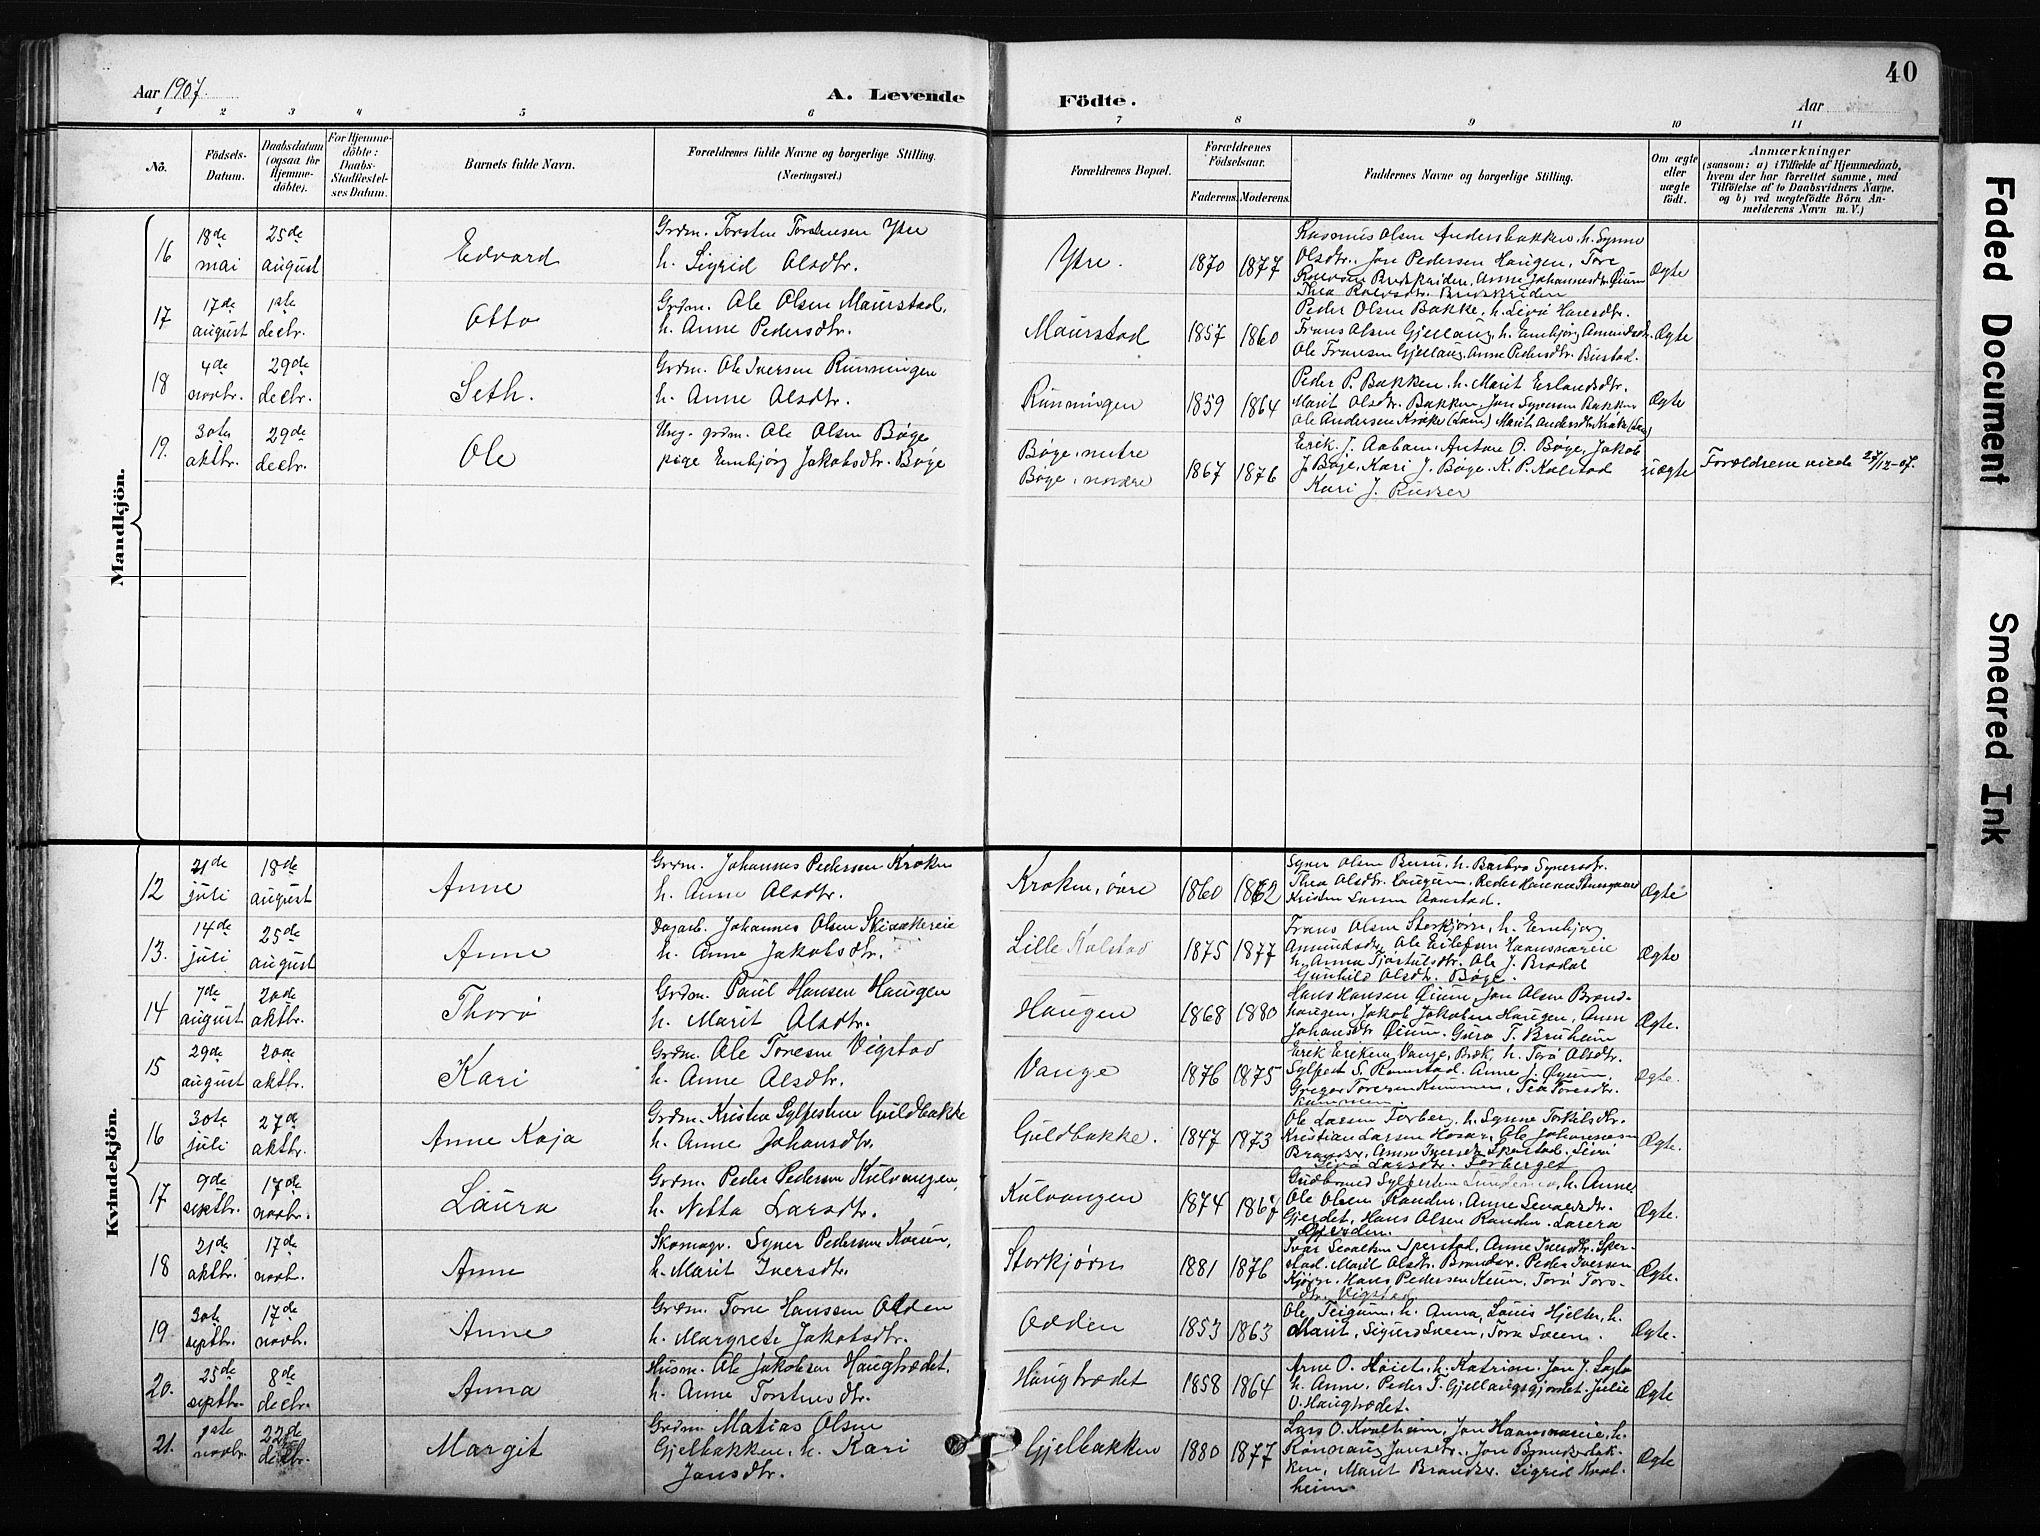 40
Aar 1907.
A. Levende Födte.
Aar
1 2 3 4 5 6 7 8 9 10 11
No.
Födsels-Datum.
Daabsdatum (ogsaa for Hjemme-döbte).
For Hjemme-döbte: Daabs-Stadfæstel-ses Datum.
Barnets fulde Navn.
Forældrenes fulde Navne og borgerlige Stilling. (Næringsvei.)
Forældrenes Bopæl.
Forældrenes Födselsaar.
Faderens. Moderens.
Faddernes Navne og borgerlige Stilling.
Om ægte eller uægte födt.
Anmærkninger
(saasom: a) i Tilfælde af Hjemmedaab, hvem der har forrettet samme, med Tilföielse af to Daabsvidners Navne. og b) ved uægtefödte Börn An-melderens Navn m. V.)
Mandkjön.
16 18de mai 25de august Edvard Grdm. Torsten Torstensen Ytre h. Sigrid Olsdtr. Ytre. 1870 1877 Rasmus Olsen Andersbakken, h. Synne Olsdtr. Jon Pedersen Haugen, Tore Ægte
17 17de august 1ste decbr. Otto Grdm. Ole Olsen Maurstad, h. Anne Pedersdtr. Maurstad 1857 1860 Peder Olsen Bakke, h. Livø Hansdtr. Frans Olsen Gjellaug, h. Embjørg Amundsdtr. Ole Fransen Gjellaug, Anne Pedersdtr. Bustad. Ægte
18 4de novbr. 29de decbr. Seth. Grdm. Ole Iversen Runningen h. Anne Olsdtr. Runningen 1859 1864 Peder P. Bakken, h. Marit Erlandsdtr. Marit Olsdtr. Bakken, Jon Syversen Bakken Ole Andersen Kroke (Lom) Marit Andersdtr. Kroke (Lom) Ægte
19. 30te oktbr. 29de decbr. Ole Ung. grdm. Ole Olsen Bøge pige Embjørg Jakobsdtr. Bøge Bøge, nedre Bøge, nordre 1867 1876 Erik J. Aabam, Antone O. Bøge, Jakob J. Bøge, Kari J. Bøge, K. P. Kolstad Kari J. uægte Forældrene viede 27/12-07.
Kvindekjön.
12 21de juli 18de august Anne Grdm. Johannes Pedersen Kroken h. Anne Olsdtr. Kroken, øvre 1860 1862 Syver Olsen h. Barbro Syversdtr. Thea Olsdtr. Kristen Larsen Aanstad. Ægte
13. 14de juli 25de august Anne Dagarb. Johannes Olsen Skjaakereie h. Anne Jakobsdtr. Lille Kolstad 1875 1877 Frans Olsen Storkjørn, h. Embjørg Amundsdtr. Ole Eilefsen h. Anna Ole J. Bradal Gunhild Olsdtr. Bøge. Ægte
14 7de august 20de oktbr. Thorø Grdm. Paul Hansen Haugen h. Marit Olsdtr. Haugen 1868 1880 Hans Hansen Øium, Jon Olsen Brænd-haugen, Jakob Jakobsen Haugen, Anne Johansdtr. Øium. Guro T. Bruheim Ægte.
15 29de august 20de oktbr. Kari Grdm. Ole Toresen Vigstad h. Anne Olsdtr. Vange 1876 1875 Erik Eriksen Vange, h. Torø Olsdtr. Sylfest S. Ramstad. Anne J. Øyum, Ægte.
16 30te juli 27de oktbr. Anne Kaja Grdm. Kristen Sylfestsen Guldbakke h. Anne Johansdtr. Guldbakke. 1847 1873 Ole Larsen Forberg, h. Synne Torkilsdtr. Kristian Larsen Hosar, Ole Johannesen Brandsar, Anne Iversdtr. Livø Larsdtr. Forberget Ægte.
17 9de septbr. 17de novbr. Laura Grdm. Peder Pedersen Kulvangen, h. Netta Larsdtr. Kulvangen 1874 1867 Gudbrand Sylfestsen h. Anne, Ole Olsen Randen, Anne Gjerdet, Hans Olsen Randen. Ægte.
18 21de oktbr. 17de novbr. Anne Skomagr. Syver Pedersen h. Marit Iversdtr. Storkjørn 1881 1876 Ivar Sperstad, Anne Iversdtr. Sper-stad. Marit Olsdtr. Brandsar. Peder Iversen Kjørn. Hans Pedersen Torø Tors-dtr. Vigstad Ægte.
19 30te septbr. 17de novbr. Anne Grdm. Tore Hanssen Odden h. Margrete Jakobsdtr. Odden 1853 1863 Ole Teigum, h. Anna, Louis Hjelter, h. Marit, Sigurd Sveen, Tora Sveen. Ægte.
20. 25de septbr. 8de decbr. Anna Husm. Ole Jakobsen Haugtrædet, h. Anne Torstensdtr. Haugtrædet 1858 1864 Arne O. h. Katrine, Jon J. h. Anne, Peder T. Gjellaugsgjordet, Julie O. Haugtrædet. Ægte
21. 1ste novbr. 22de decbr. Margit Grdm. Matias Olsen Gjelbakken, h. Kari Jonsdtr. Gjelbakken 1880 1877 Lars O. Kvalheim, Jon h. Rønnaug Jonsdtr. Jon Marit Brandsar. Sigrid Kval-heim. Ægte
Faded Document
Smeared Ink